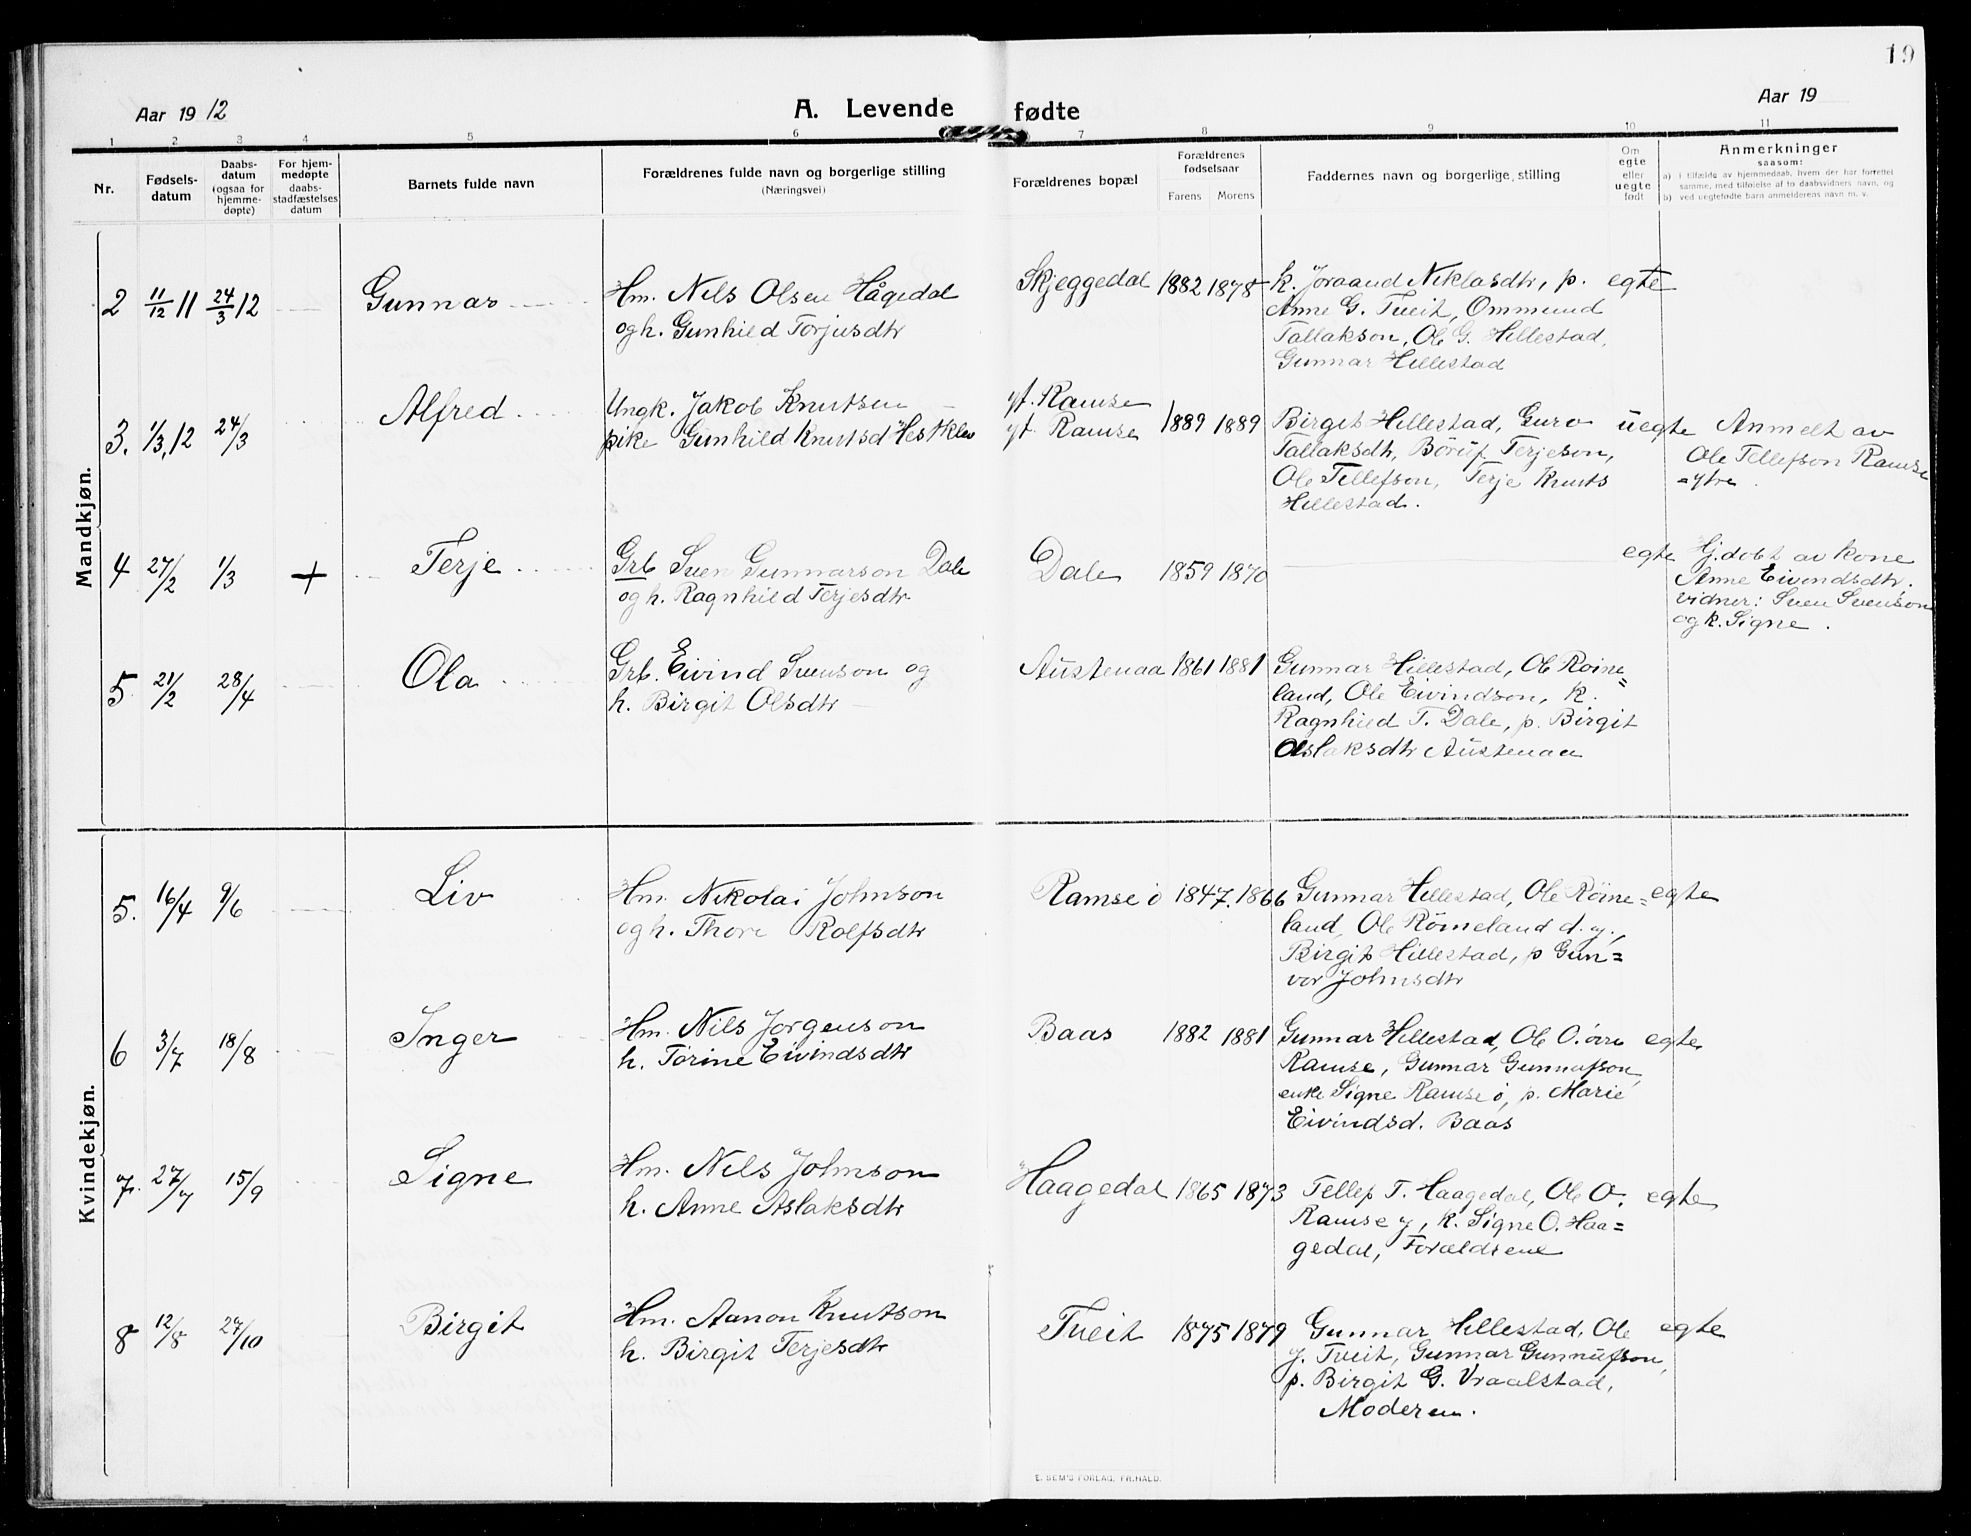 19
Aar 1912
A. Levende fødte
Aar 19
1 2 3 4 5 6 7 8 9 10 11
Nr.
Fødsels-
datum
Daabs-
datum
(ogsaa for
hjemme-
døpte)
For hjem-
medøpte
daabs-
stadfæstelses
datum
Barnets fulde navn
Forældrenes fulde navn og borgerlige stilling
(Næringsvei)
Forældrenes bopæl
Forældrenes
fødselsaar
Farens Morens
Faddernes navn og borgerlige stilling
Om
egte
eller
uegte
født
Anmerkninger
saasom:
a) i tilfælde av hjemmedaab, hvem der har forrettet
samme, med tilføielse af to daabsvidners navn, og
b) ved uegtefødte barn anmelderens navn m. v.
Mandkjøn.
2 11/12 11 24/3 12 Gunnar
Hm. Nils Olsen Hågedal
og h. Gunhild Torjusdtr
Skjeggedal 1882 1878
k. Joraand Niklasdtr, p.
Anne G. Tveit, Ommund
Tallakson, Ole G. Hillestad,
Gunnar Hillestad
egte
3. 1/3 12 24/3 Alfred
Ungk. Jakob Knutsen
pike Gunhild Knutsd Hestklev
yt. Ramse
yt. Ramse
1889 1889
Birgit Hillestad, Guro
Tallaksdtr, Börüf Terjeson,
Ole Tellefson, Terje Knuts
Hillestad.
uegte
Anmelt av
Ole Tellefson Ramse
=ytre
4 27/2 1/3 + Terje
Grb Sven Gunnarson Dale
og h. Ragnhild Terjesdtr
Dale 1859 1870
egte
Hj.døbt av kone
Anne Eivindsdtr.
vidner: Sven Svenson
og k. Signe.
5 21/2 28/4 Ola
Grb. Eivind Svenson og
h. Birgit Olsdtr
Austenaa 1861 1881
Gunnar Hillestad, Ole Röine=
land, Ole Eivindson, k.
Ragnhild T. Dale, p. Birgit
Aslaksdtr Austenaa
Kvindekjøn.
5. 16/4 9/6 Liv
Hm. Nikolai Johnson
og h. Thore Rolfsdtr
Ramse ö 1847. 1866
Gunnar Hillestad, Ole Röine=
land, Ole Röineland d. y.,
Birgit Hillestad, p Gun=
vor Johnsdtr
egte
6 3/7 18/8 Inger
Hm. Nils Jorgenson
h. Torine Eivindsdtr
Baas 1882 1881
Gunnar Hillestad, Ole O. övre
Ramse, Gunnar Gunnufson,
enke Signe Ramse ö, p. Marie
Eivindsd. Baas
egte
7. 27/7 15/9 Signe
Hm. Nils Johnson
h. Anne Aslaksdtr
Haagedal 1865 1873
Tellef T. Haagedal, Ole O.
Ramse y, k. Signe O. Haa=
gedal, Forældrene
egte
8 12/8 27/10 Birgit
Hm. Aanon Knutson
h. Birgit Terjesdtr
Tveit 1875 1879
Gunnar Hillestad, Ole
y. Tveit, Gunnar Gunnufson,
p. Birgit G. Vraalstad,
Moderen.
egte
E. SEM'S FORLAG, FR.HALD.